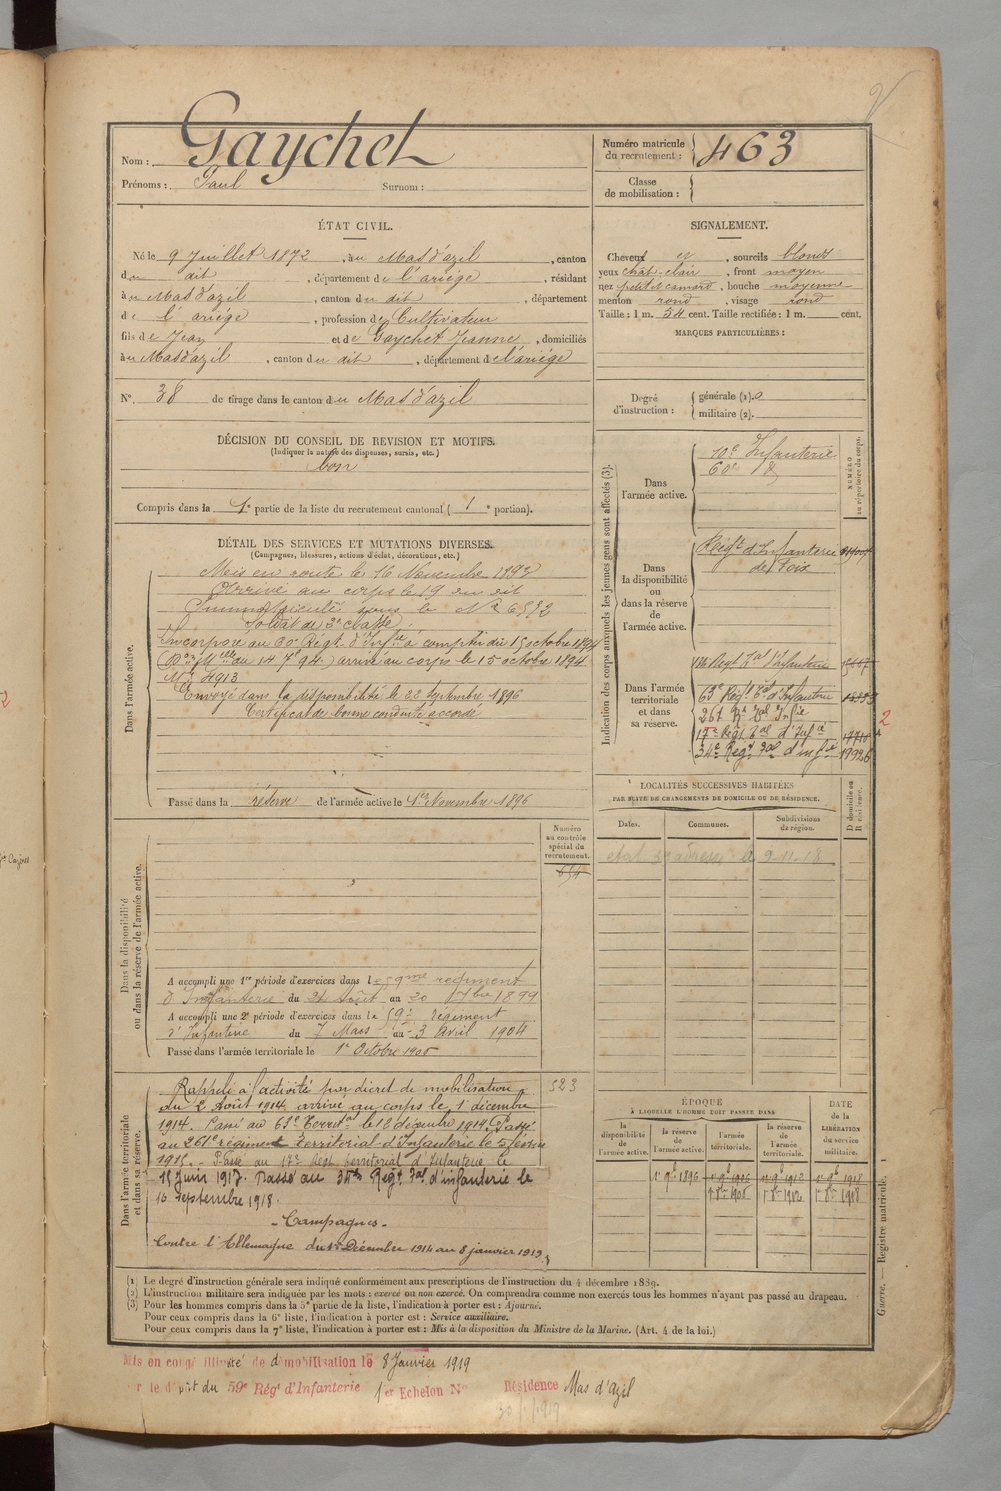 Nom : Gaychet
Prénoms : Paul Surnom :
Numéro matricule du recrutement : 463
Classe de mobilisation :
ÉTAT CIVIL.
Né le 9 Juillet 1872, à u Mas d'azil, canton
d u dit, département de l'ariége, résidant
à u Mas d'azil, canton d u dit, département
de l'ariége, profession de Cultivateur
fils de Jean et de Gaychet Jeanne, domiciliés
à u Mas d'azil, canton d u dit, département de l'ariége
N° 38 de tirage dans le canton du Mas d'azil
SIGNALEMENT.
Cheveux et, sourcils blonds
yeux chât-clair, front moyen
nez petit et camard, bouche moyenne
menton rond, visage rond
Taille : 1 m. 54 cent. Taille rectifiée : 1 m. cent.
MARQUES PARTICULIÈRES :
Degré d'instruction : générale (1).
militaire (2).
DÉCISION DU CONSEIL DE REVISION ET MOTIFS.
(Indiquer la nature des dispenses, sursis, etc.)
bon
Compris dans la 1e partie de la liste du recrutement cantonal ( 1e portion).
DÉTAIL DES SERVICES ET MUTATIONS DIVERSES.
(Campagnes, blessures, actions d'éclat, décorations, etc.)
Dans l'armée active.
Mis en route le 16 Novembre 1893
Arrivé au corps le 19 en dit
Immatriculé sous le N° 6592
Soldat de 2e classe.
Incorporé au 60e Régt. d'Infie à compter du 15 octobre 1894
du 14 7e 94.) arrivé au corps le 15 octobre 1894
4913
Envoyé dans la disponibilité le 22 Septembre 1896
Certificat de bonne conduite accordé
Passé dans la réserve de l'armée active le 1er Novembre 1896
Indication des corps auxquels les jeunes gens sont affectés (3).
NUMÉRO au répertoire du corps.
Dans l'armée active.
10e Infanterie
60e
Dans la disponibilité ou dans la réserve de l'armée active.
Régt d'Infanterie
de Foix
Dans l'armée territoriale et dans sa réserve.
63e Régt Tal d'Infanterie
261 Rt Tal Infie
17e Régt Tal d'Infie 17710
34e Regt Tal d'Infie 19926
2
LOCALITÉS SUCCESSIVES HABITÉES
PAR SUITE DE CHANGEMENTS DE DOMICILE OU DE RÉSIDENCE.
Dates. Communes. Subdivisions de région. D domicile ou R résidence.
9-11-18
Dans la disponibilité ou dans la réserve de l'armée active.
Numéro au contrôle spécial du recrutement.
654
A accompli une 1re période d'exercices dans le 59me regiment
d'Infanterie du 24 Août au 20 7bre 1899
A accompli une 2e période d'exercices dans le 59e régiment
d'Infanterie du 7 Mars au 3 Avril 1904
Passé dans l'armée territoriale le 1er Octobre 1906
Dans l'armée territoriale et dans sa réserve.
523
Rappelé à l'activité par décret de mobilisation
du 2 Août 1914 arrivé au corps le 1er décembre
1914. Passé au 63e Territal le 18 décembre 1914. Passé
au 261e régiment Territorial d'Infanterie le 5 février
1915. - Passé au 17e Régt territorial d'Infanterie le
15 Juin 1917. Passé au 34me Régt Tal d'infanterie le
16 Septembre 1918.
- Campagnes -
Contre l'Allemagne du 1er Décembre 1914 au 8 janvier 1919.
ÉPOQUE
À LAQUELLE L'HOMME DOIT PASSER DANS
DATE de la LIBÉRATION du service militaire.
la disponibilité de l'armée active. la réserve de l'armée active. l'armée territoriale. la réserve de l'armée territoriale.
1er 9e 1896 1er 9e 1906 1er 9e 1912 1er 9e 1918
1er 8e 1906 1er 8e 1912 1er 8e 1918
Guerre. — Registre matricule. 1
(1) Le degré d'instruction générale sera indiqué conformément aux prescriptions de l'instruction du 4 décembre 1889.
(2) L'instruction militaire sera indiquée par les mots : exercé ou non exercé. On comprendra comme non exercés tous les hommes n'ayant pas passé au drapeau.
(3) Pour les hommes compris dans la 5e partie de la liste, l'indication à porter est : Ajourné.
Pour ceux compris dans la 6e liste, l'indication à porter est : Service auxiliaire.
Pour ceux compris dans la 7e liste, l'indication à porter est : Mis à la disposition du Ministre de la Marine. (Art. 4 de la loi.)
Mis en congé illimité de démobilisation le 8 Janvier 1919
par le dépôt du 59e Régt d'Infanterie 1er Echelon N° Résidence Mas d'Azil